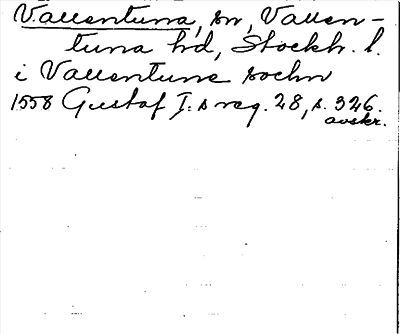 Vallentuna, sn, Vallen-
tuna hd, Stockh. l.
i Vallentune sochn
1558 Gustaf I:s reg. 28, s. 326.
avskr.